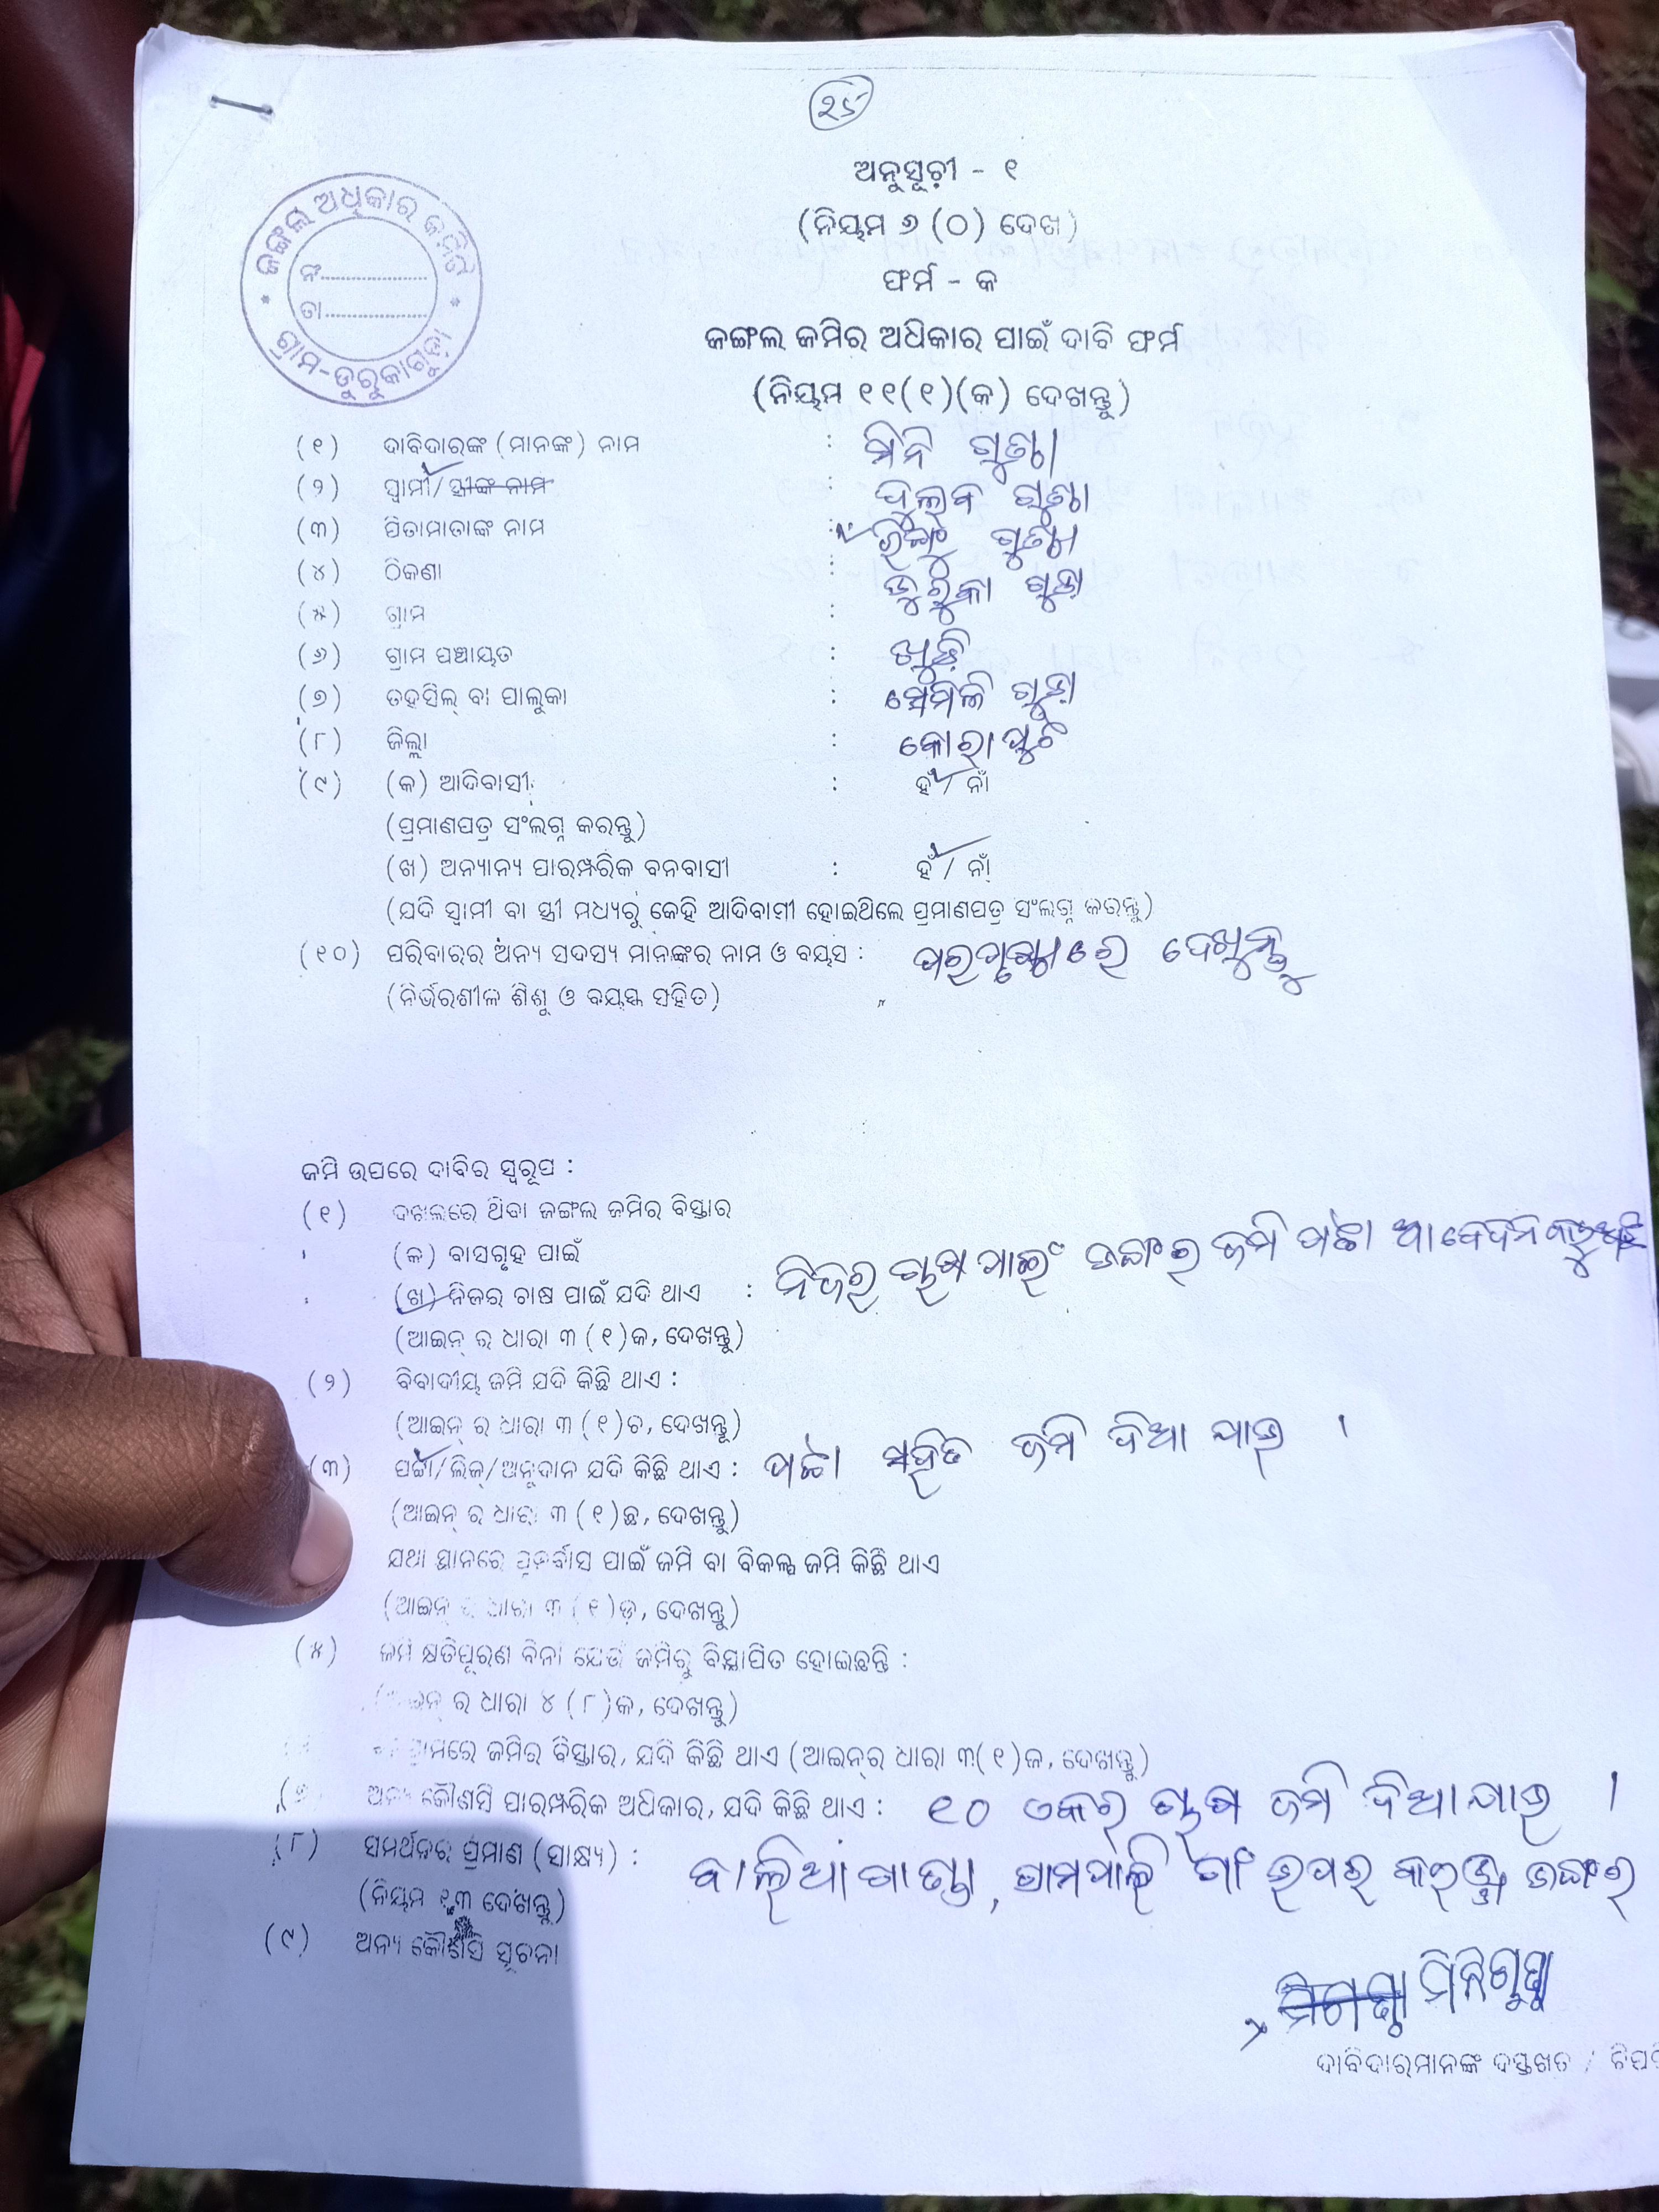 ୨୪
ଜଙ୍ଗଲ ଅଧିକାର କମିଟି
ନଂ
ତା
ଗ୍ରାମ-ଡୁରୁକାଗୁଡ଼ା
ଅନୁସୂଚୀ - ୧
(ନିୟମ ୬ (୦) ଦେଖ)
ଫର୍ମ - କ
ଜଙ୍ଗଲ ଜମିର ଅଧିକାର ପାଇଁ ଦାବି ଫର୍ମ
(ନିୟମ ୧୧(୧)(କ) ଦେଖନ୍ତୁ)
(୧) ଦାବିଦାରଙ୍କ (ମାନଙ୍କ) ନାମ : ମିନି
(୨) ସ୍ୱାମୀ/ସ୍ତ୍ରୀଙ୍କ ନାମ :
(୩) ପିତାମାତାଙ୍କ ନାମ :
(୪) ଠିକଣା : ଡୁରୁକା ଗୁଡ଼ା
(୫) ଗ୍ରାମ :
(୬) ଗ୍ରାମ ପଞ୍ଚାୟତ :
(୭) ତହସିଲ୍ ବା ପାଲୁକା : ସେମିଳି ଗୁଡ଼ା
(୮) ଜିଲ୍ଲା : କୋରାପୁଟ
(୯) (କ) ଆଦିବାସୀ : ହଁ / ନାଁ
(ପ୍ରମାଣପତ୍ର ସଂଲଗ୍ନ କରନ୍ତୁ)
(ଖ) ଅନ୍ୟାନ୍ୟ ପାରମ୍ପରିକ ବନବାସୀ : ହଁ / ନାଁ
(ଯଦି ସ୍ୱାମୀ ବା ସ୍ତ୍ରୀ ମଧ୍ୟରୁ କେହି ଆଦିବାସୀ ହୋଇଥିଲେ ପ୍ରମାଣପତ୍ର ସଂଲଗ୍ନ କରନ୍ତୁ)
(୧୦) ପରିବାରର ଅନ୍ୟ ସଦସ୍ୟ ମାନଙ୍କର ନାମ ଓ ବୟସ : ପରପୃଷ୍ଠାରେ ଦେଖନ୍ତୁ
(ନିର୍ଭରଶୀଳ ଶିଶୁ ଓ ବୟସ୍କ ସହିତ)
ଜମି ଉପରେ ଦାବିର ସ୍ୱରୂପ :
(୧) ଦଖଲରେ ଥିବା ଜଙ୍ଗଲ ଜମିର ବିସ୍ତାର
(କ) ବାସଗୃହ ପାଇଁ
(ଖ) ନିଜର ଚାଷ ପାଇଁ ଯଦି ଥାଏ : ନିଜର ଚାଷ ପାଇଁ ଡଙ୍ଗର ଜମି ପଟ୍ଟା ଆବେଦନ କରୁଅଛି
(ଆଇନ୍ ର ଧାରା ୩ (୧)କ, ଦେଖନ୍ତୁ)
(୨) ବିବାଦୀୟ ଜମି ଯଦି କିଛି ଥାଏ :
(ଆଇନ୍ ର ଧାରା ୩ (୧)ଚ, ଦେଖନ୍ତୁ)
(୩) ପଟ୍ଟା/ଲିଜ୍/ଅନୁଦାନ ଯଦି କିଛି ଥାଏ : ପଟ୍ଟା ସହିତ ଜମି ଦିଆ ଯାଉ ।
(ଆଇନ୍ ର ଧାରା ୩ (୧)ଛ, ଦେଖନ୍ତୁ)
ଯଥା ସ୍ଥାନରେ ପୁନର୍ବାସ ପାଇଁ ଜମି ବା ବିକଳ୍ପ ଜମି କିଛି ଥାଏ
(ଆଇନ୍ ର ଧାରା ୩ (୧)ଡ଼, ଦେଖନ୍ତୁ)
(୫) ଜମି କ୍ଷତିପୂରଣ ବିନା ଯେଉଁ ଜମିରୁ ବିସ୍ଥାପିତ ହୋଇଛନ୍ତି :
ର ଧାରା ୪ (୮)କ, ଦେଖନ୍ତୁ)
ଜମିର ବିସ୍ତାର, ଯଦି କିଛି ଥାଏ (ଆଇନ୍‌ର ଧାରା ୩(୧)ଜ, ଦେଖନ୍ତୁ)
ଅନ୍ୟ କୌଣସି ପାରମ୍ପରିକ ଅଧିକାର, ଯଦି କିଛି ଥାଏ : ୧୦ ଏକର ଚାଷ ଜମି ଦିଆଯାଉ ।
(୮) ସମର୍ଥନର ପ୍ରମାଣ (ସାକ୍ଷ୍ୟ) :
(ନିୟମ ୧୩ ଦେଖନ୍ତୁ)
(୯) ଅନ୍ୟ କୌଣସି ସୂଚନା
ଦାବିଦାରମାନଙ୍କ ଦସ୍ତଖତ / ଟିପ